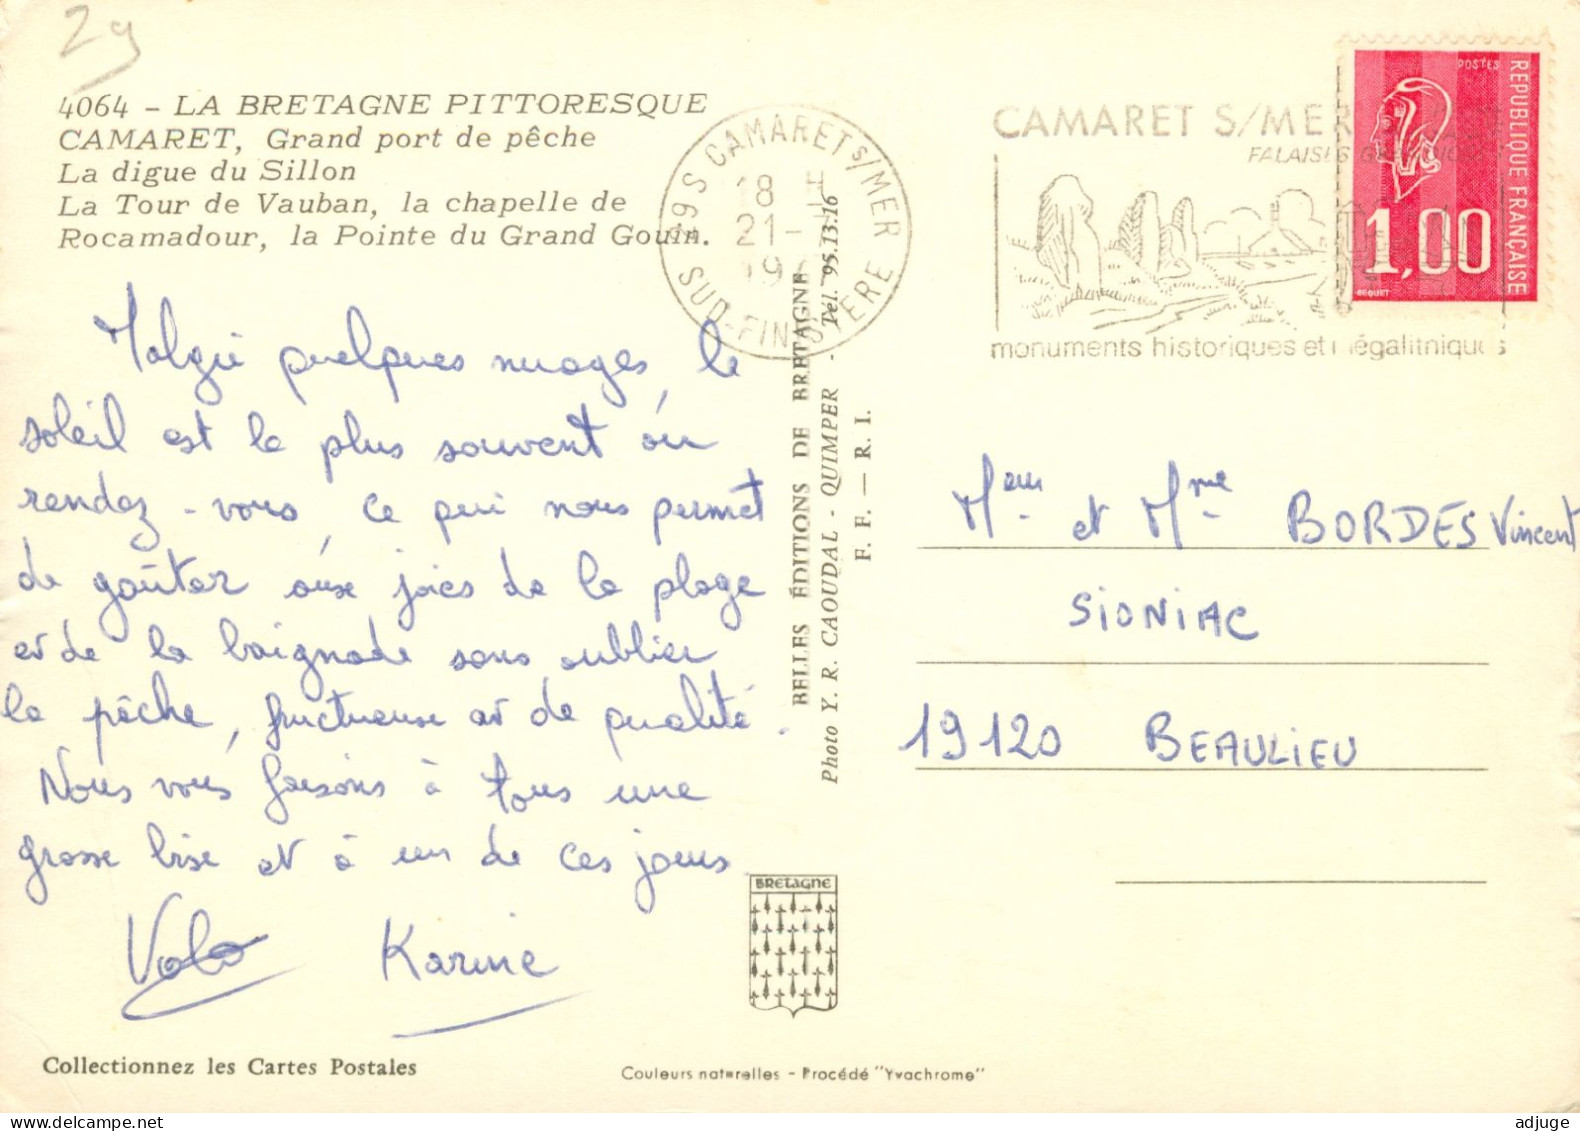 29
4064 - LA BRETAGNE PITTORESQUE
CAMARET, Grand port de pêche
La digue du Sillon
La Tour de Vauban, la chapelle de
Rocamadour, la Pointe du Grand Gouin.
Malgré quelques nuages, le
soleil est le plus souvent au
rendez-vous, ce qui nous permet
de goûter aux joies de la plage
et de la baignade sans oublier
la pêche, fructueuse et de qualité.
Nous vous faisons à tous une
grosse bise et à un de ces jours
Karine
Collectionnez les Cartes Postales
BELLES ÉDITIONS DE BRETAGNE
Photo Y. R. CAOUDAL - QUIMPER - Tél. 95.13.16
F. F. — R. I.
BRETAGNE
Couleurs naturelles - Procédé "Yvachrome"
CAMARET S/MER
SUD-FINISTERE
18 H
21-
19
CAMARET S/MER
FALAISES
monuments historiques et mégalithiques
POSTES
REPUBLIQUE FRANÇAISE
1,00
BEQUET
Meur et Mme BORDES Vincent
SIONIAC
19120 BEAULIEU
adjuge.com